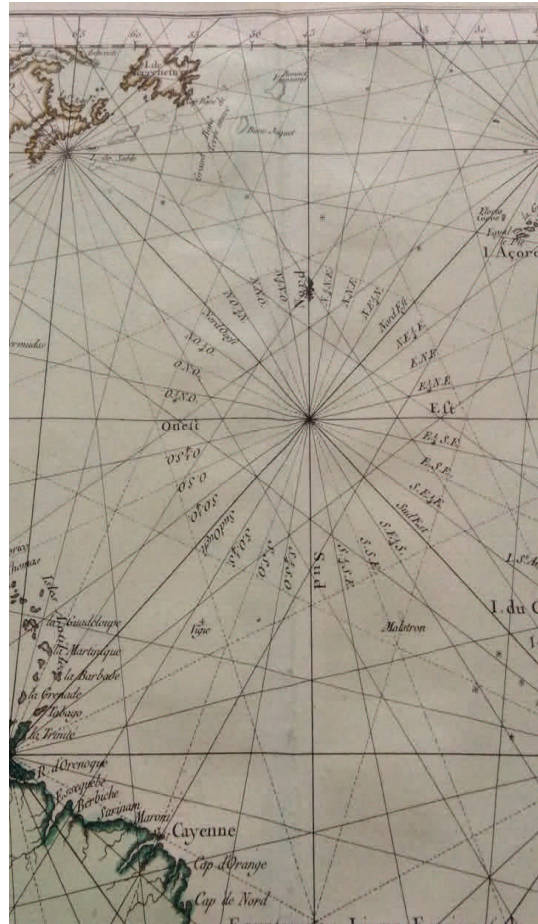 70
65
55
50
45
40
35
30
Banc Jaquet
I. de Sable
I. Açore
Nord
N¼N.E.
N.N.E.
N.E¼N.
Nord Est
N.E¼E.
E.N.E.
E¼N.E.
Est
E¼S.E.
E.S.E.
S.E¼E.
Sud Est
S.E¼S.
S.S.E.
S¼S.E.
Sud
S¼S.O.
S.S.O.
S.O¼S.
Sud Ouest
S.O¼O.
O.S.O.
O¼S.O.
Ouest
O¼N.O.
O.N.O.
N.O¼O.
Nord Ouest
N.O¼N.
N.N.O.
N¼N.O.
ermudas
homas
Isles
Antilles
la Guadeloupe
la Martinique
la Barbade
la Grenade
Tabago
la Trinité
Vigie
Malstron
I. du C
R. d'Orenoque
Essequebé
Berbiche
Surinam
Maroni
Cayenne
Cap d'Orange
Cap de Nord